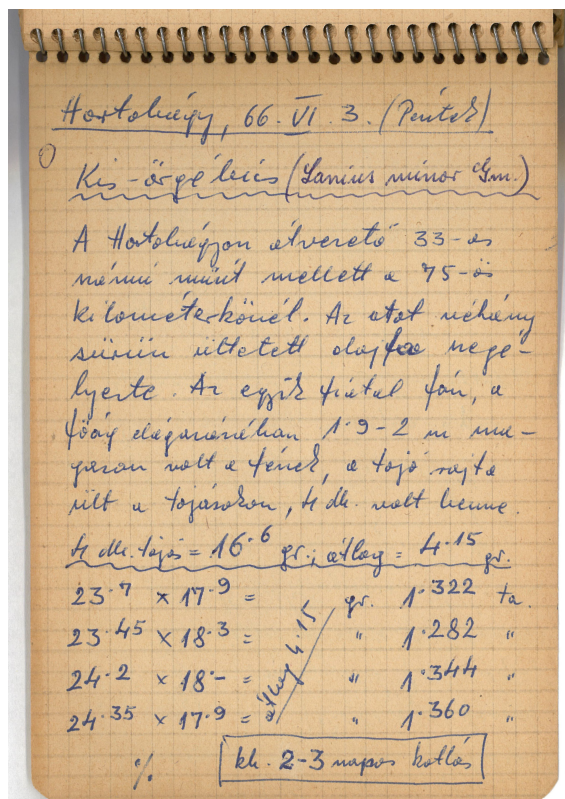 Hortobágy, 66. VI. 3. (Péntek)
Kis-őrgébics (Lanius minor Gm.)
A Hortobágyon átvezető 33-as
számú műút mellett a 75-ös
kilométerkőnél. Az utat néhány
sűrűn ültetett olajfa szegé-
lyezte. Az egyik fiatal fán, a
főág elágazásában 1.9-2 m ma-
gasan volt a fészek, a tojó rajta
ült a tojásokon, 4 db. volt benne.
4 db. tojás = 16.6 gr.; átlag = 4.15 gr.
23.7 × 17.9 = gr. 1.322 ta.
23.45 × 18.3 = " 1.282 "
24.2 × 18.- = " 1.344 "
24.35 × 17.9 = " 1.360 "
átlag 4.15
kb. 2-3 napos kotlás
%